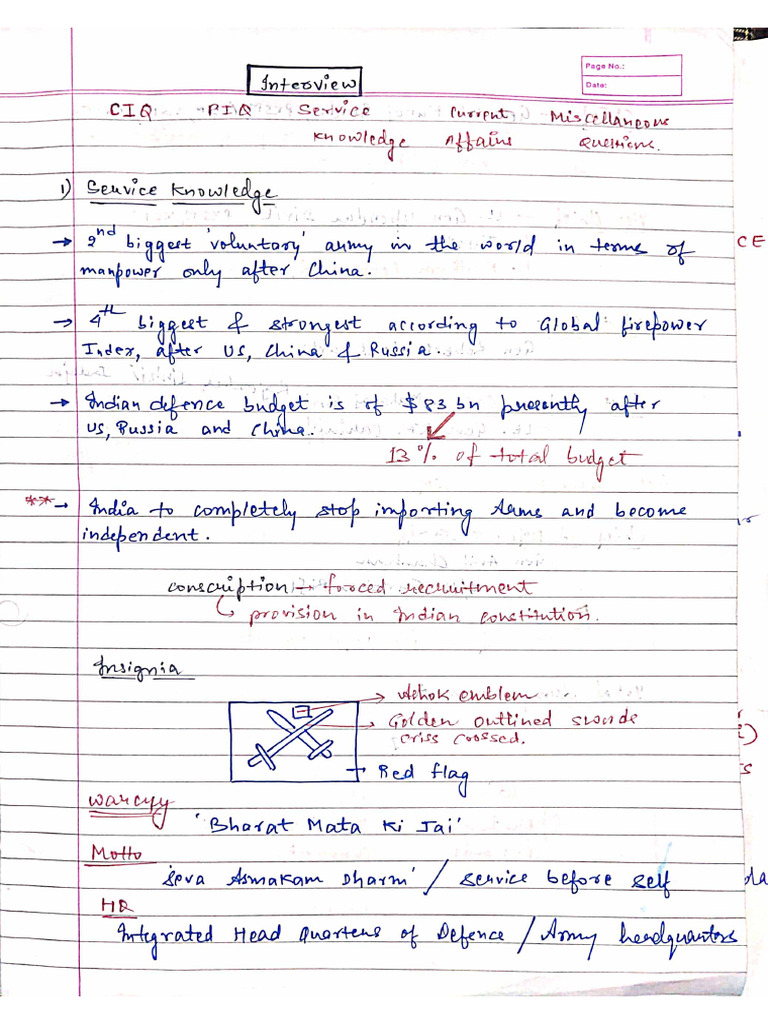 Interview
Page No.:
Date:
CIQ PIQ Service Current Miscellaneous
Knowledge Affairs Questions.
1) Service Knowledge
→ 2nd biggest 'voluntary' army in the world in terms of
manpower only after China.
→ 4th biggest & strongest according to Global firepower
Index, after US, China & Russia.
→ Indian defence budget is of $83 bn presently after
US, Russia and China.
13% of total budget
** → India to completely stop importing Arms and become
independent.
conscription → forced recruitment
↳ provision in Indian constitution.
Insignia
→ Ashok emblem
→ Golden outlined swords
criss crossed.
→ Red flag
Warcyy
'Bharat Mata Ki Jai'
Motto
'Seva Asmakam Dharm' / Service before self
HQ
Integrated Head Quarters of Defence / Army headquarters
CE